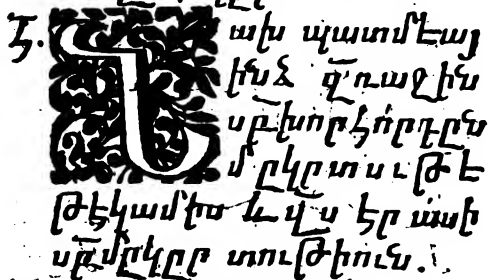 Նախ պատմեայ
ինձ զ՛ռաջին
սբ խորհորդըն
մըկրտաւթե
թէկամիս և վս էր ասի
սբ մըկըրտութիուն.